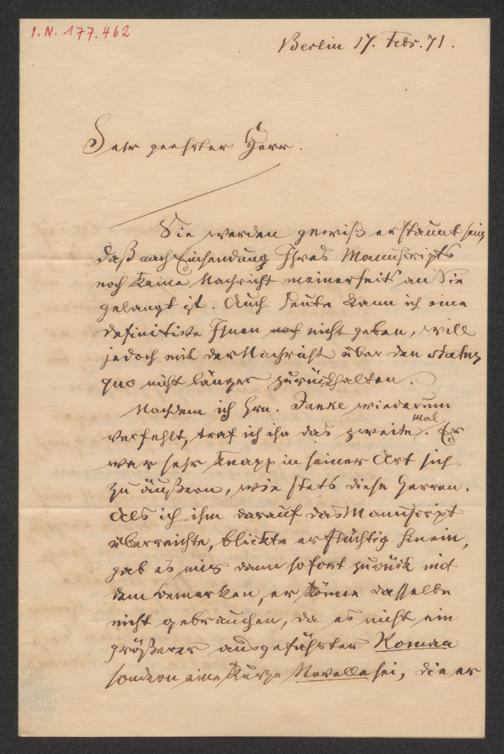 I.N. 177.462
Berlin 17. Febr. 71.
Sehr geehrter Herr.
Sie werden gewiß erstaunt sein,
daß nach Einsendung Ihres Manuscripts
noch keine Nachricht meinerseits an Sie
gelangt ist. Auch heute kann ich eine
definitive Ihnen noch nicht geben, will
jedoch mit der Nachricht über den status
quo nicht länger zurückhalten.
Nachdem ich Hrn. Janke wiederum
verfehlt, traf ich ihn das zweite Mal. Er
war sehr knapp in seiner Art sich
zu äußern, wie stets diese Herren.
Als ich ihm darauf das Manuscript
überreichte, blickte er flüchtig hinein,
gab es mir dann sofort zurück mit
dem Bemerken, er könne dasselbe
nicht gebrauchen, da es nicht ein
größerer ausgeführter Roman
sondern eine kurze Novelle sei, die er